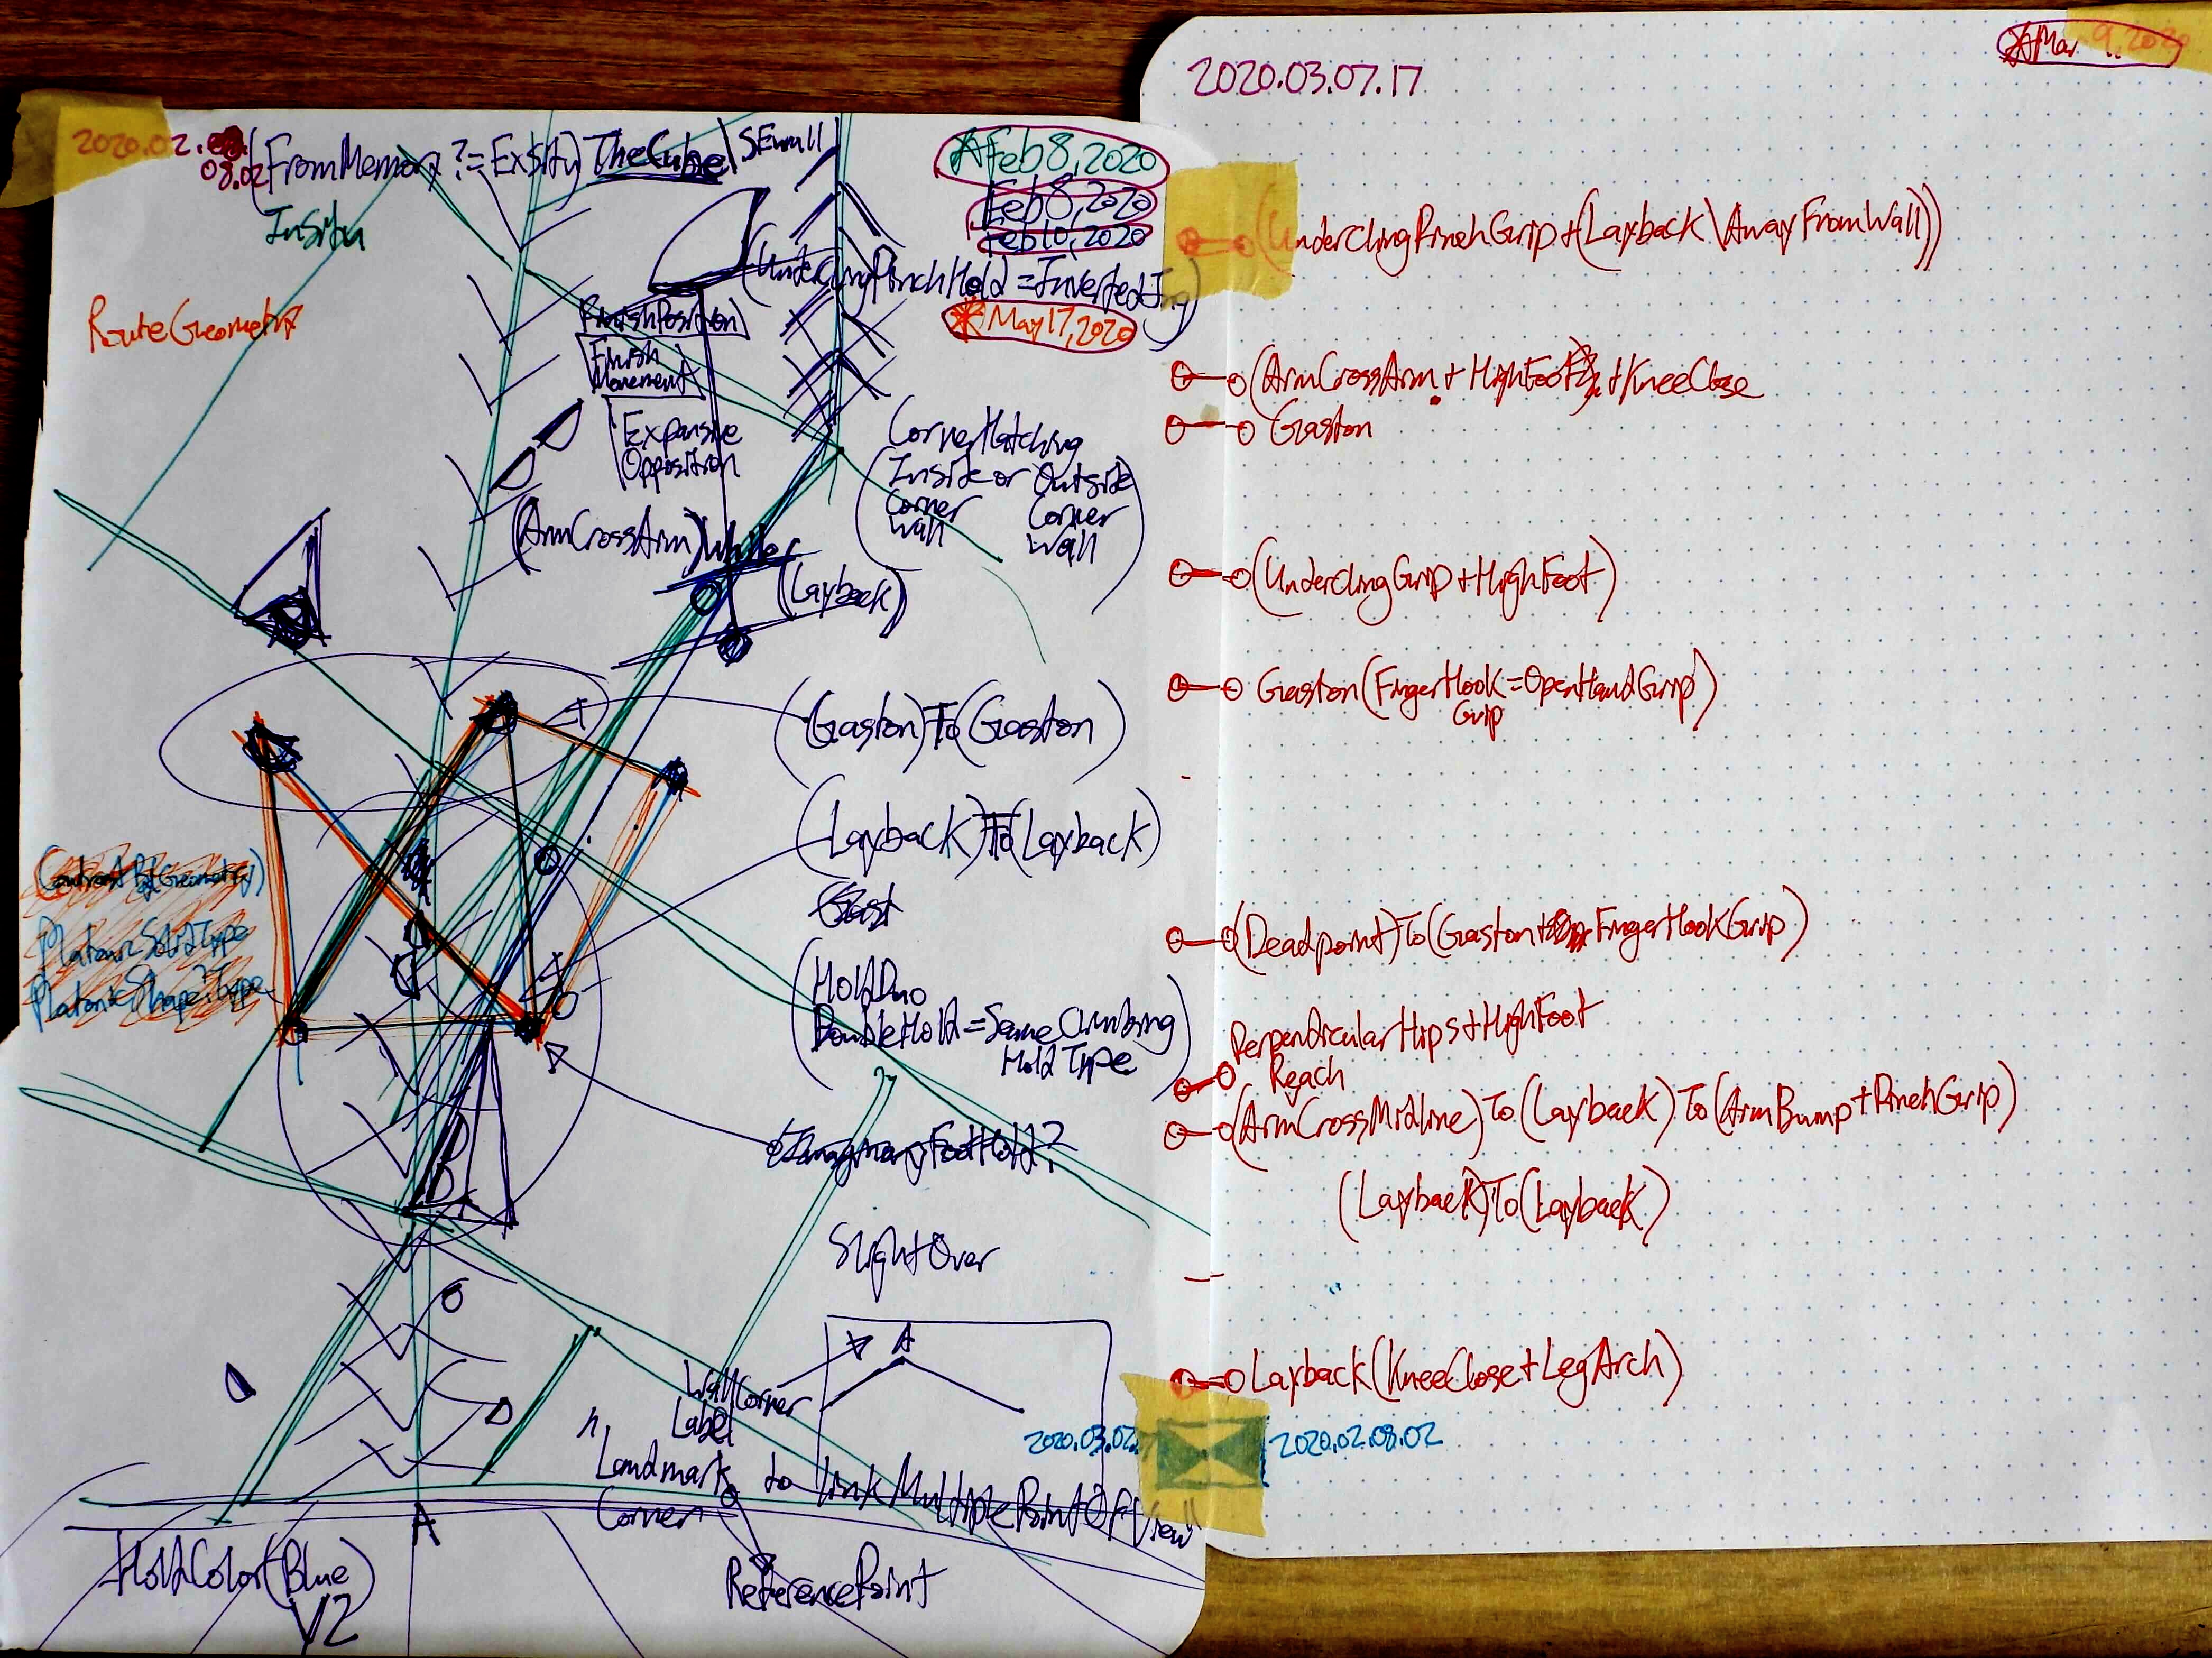 2020.02.
08.02
(FromMemory ?= ExSitu) TheCube\SEwall
InSitu
Feb 8, 2020
Feb 8, 2020
Feb 10, 2020
May 17, 2020
RouteGeometry
(UnderclingPinchHold = InvertedJug)
FinishPosition
Finish
Movement
Expansive
Opposition
CornerMatching
Inside or Outside
Corner Corner
Wall Wall
(ArmCrossArm)
(Layback)
(Gaston)To(Gaston)
(Layback)To(Layback)
Gast
(HoldDuo
DoubleHold = SameClimbing
HoldType)
PlatonicSolidType
PlatonicShape?Type
ImaginaryFootHold?
SlightOver
A
WallCorner
Label
Landmark to linkMultiplePointOfView
Corner
A
ReferencePoint
HoldColor(Blue)
V2
2020.03.02
2020.03.07.17
Mar 9, 2020
(UnderclingPinchGrip + (Layback\AwayFromWall))
(ArmCrossArm + HighFoot) + KneeClose
Gaston
(UnderclingGrip + HighFoot)
Gaston(FingerHook = OpenHandGrip)
Grip
(Deadpoint)To(Gaston + FingerHookGrip)
PerpendicularHips + HighFoot
Reach
(ArmCrossMidline)To(Layback)To(ArmBump + PinchGrip)
(Layback)To(Layback)
Layback(KneeClose + LegArch)
2020.02.08.02